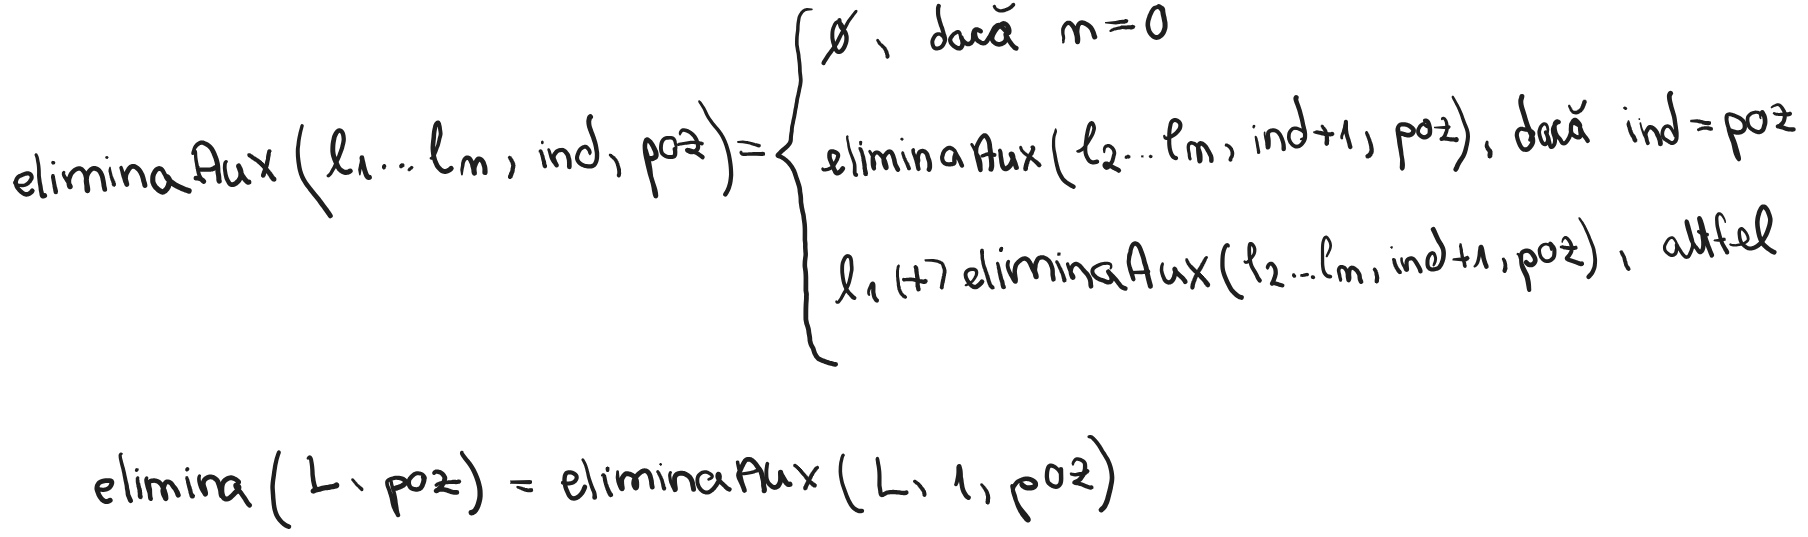 ∅, dacă n=0
eliminaAux(l₁...lₙ, ind, poz)=
eliminaAux(l₂...lₙ, ind+1, poz), dacă ind=poz
l₁ (+) eliminaAux(l₂...lₙ, ind+1, poz), altfel
elimina(L, poz) = eliminaAux(L, 1, poz)